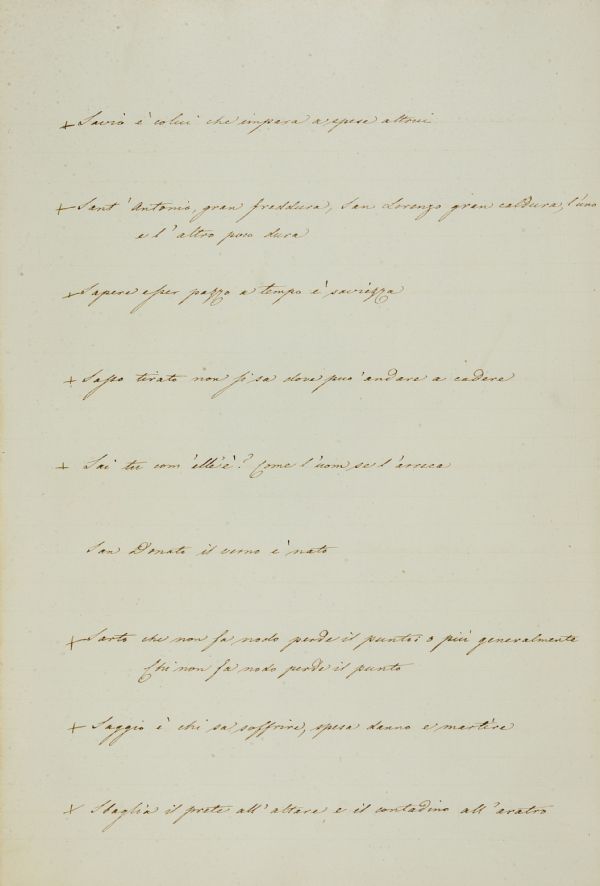 + Savio è colui che impara a spese altrui
+ Sant' Antonio, gran freddura, San Lorenzo gran caldura, l'uno
e l'altro poco dura
+ Sapere esser pazzo a tempo è saviezza
+ Sasso tirato non si sa dove puo' andare a cadere
+ Sai tu com' ell' è? Come l'uom se l'arreca
San Donato il verno è nato
+ Sarto che non fa nodo perde il punto; o più generalmente
Chi non fa nodo perde il punto
+ Saggio è chi sa soffrire, spesa danno e martìre
+ Sbaglia il prete all'altare e il contadino all'aratro